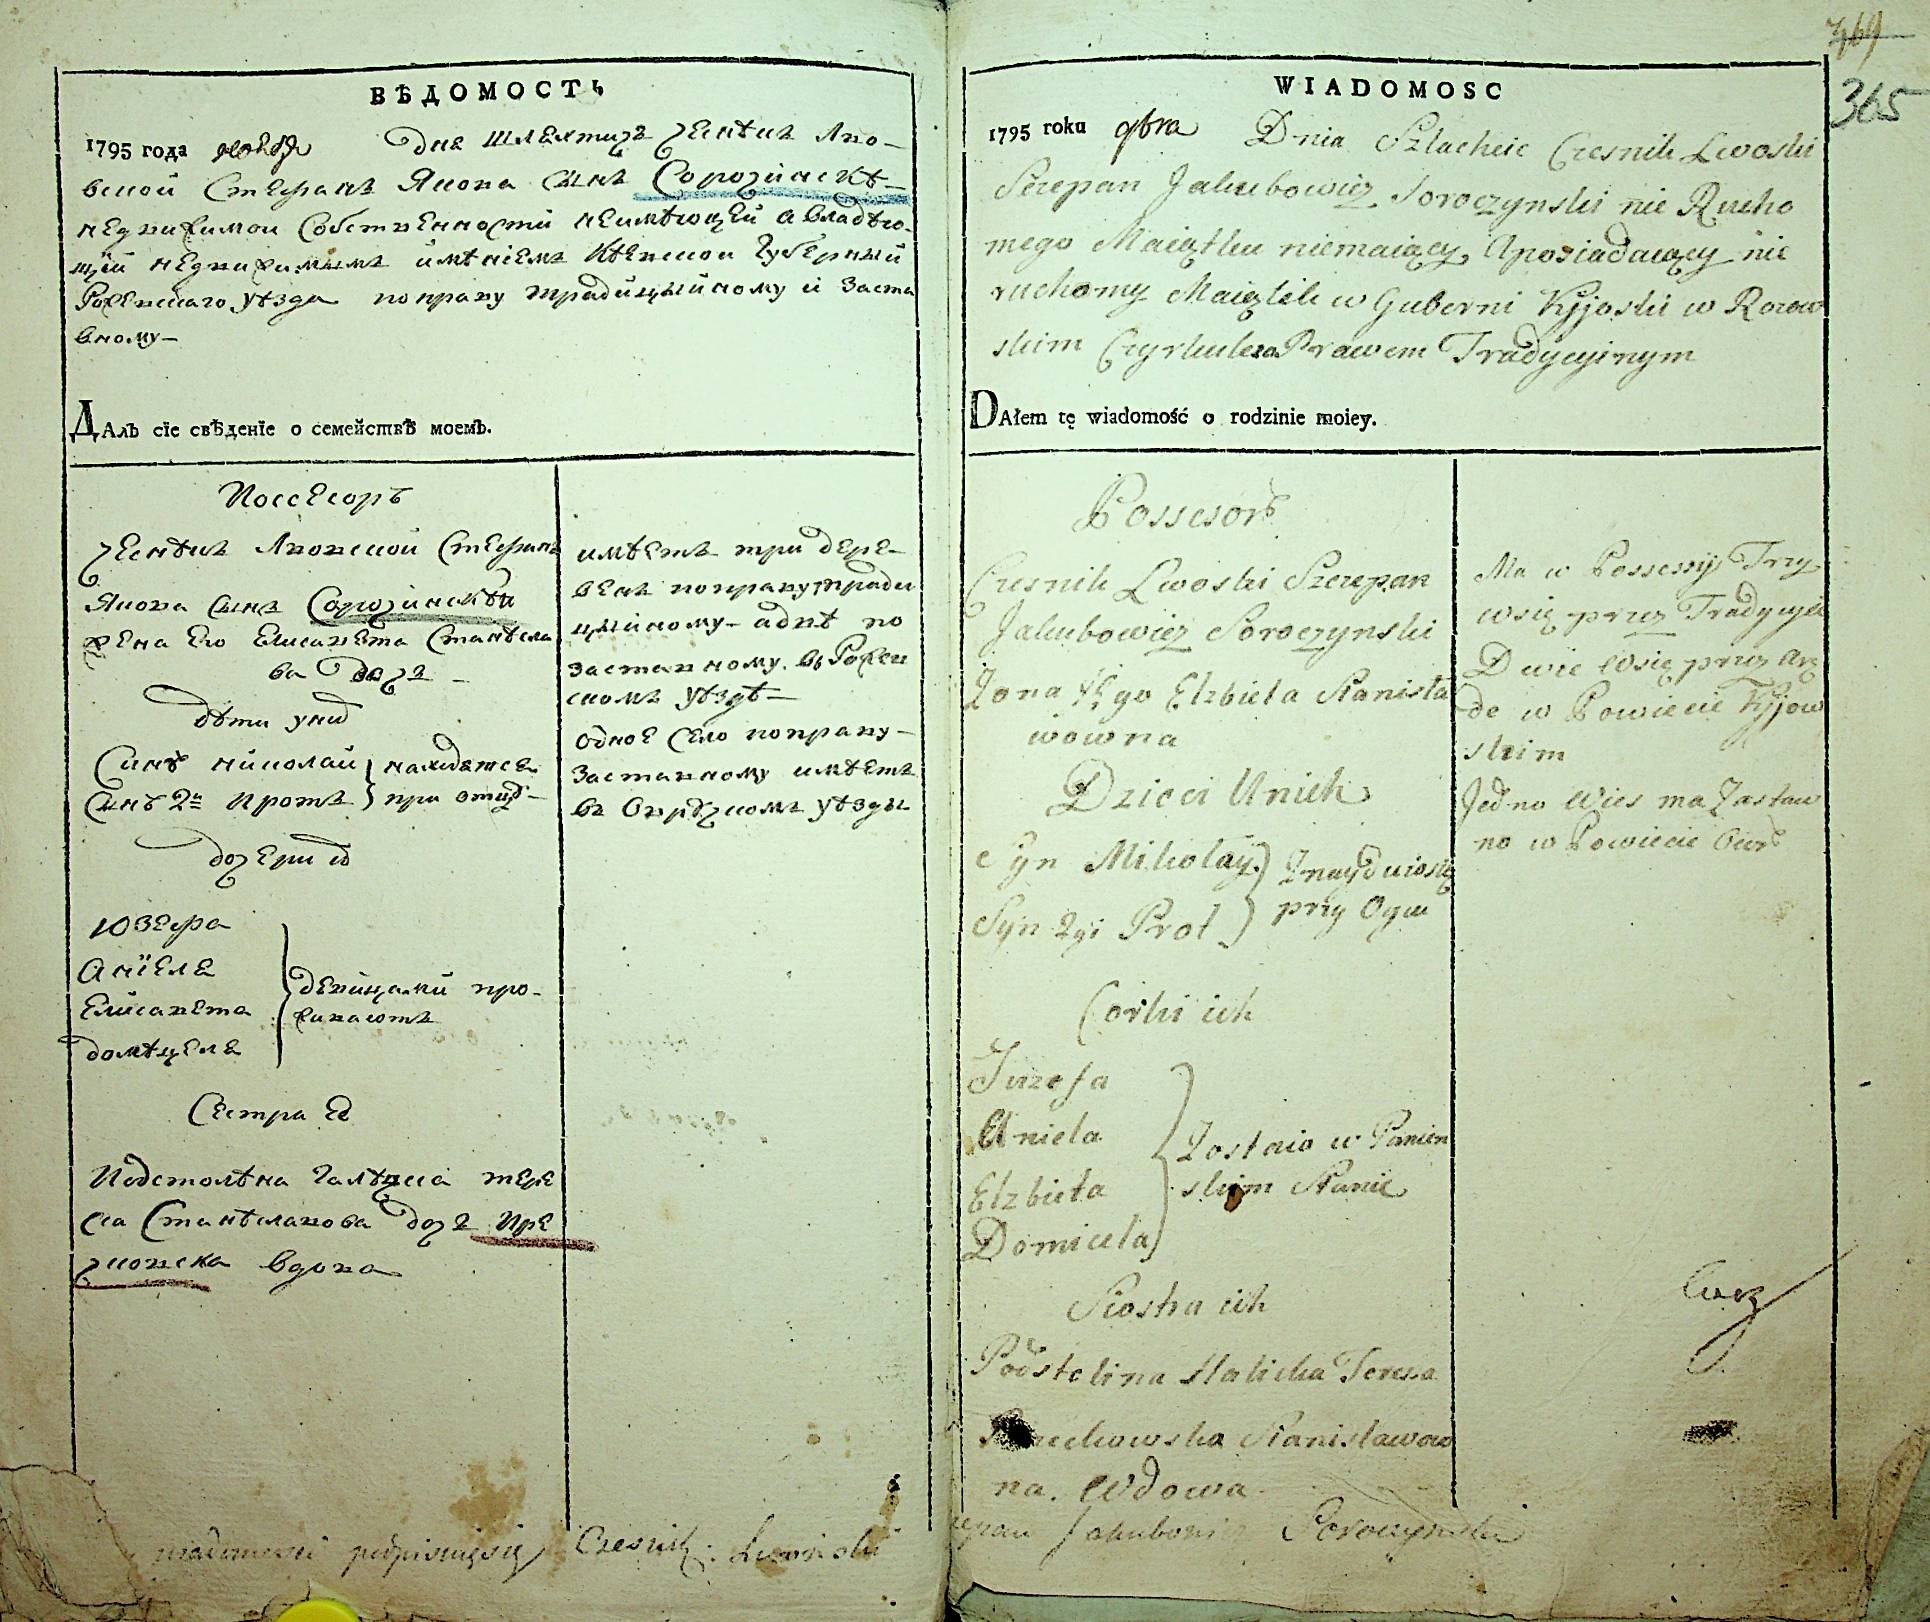 ВѢДОМОСТЬ
1795 года ноября Дня шляхтичъ чеснѣкъ Лво-
вской Стефанъ Якова сынъ Сорочинскѣ
недвижимои собственности неимѣющей а владѣю-
щій недвижимымъ имѣнiемъ Кѣевскои Губерный
уѣзда по праву традицыйному и заста
вному-
ДАлъ сїе свѣденїе о семействѣ моемъ.
Поссесоръ
чеснѣкъ Лвовской Стефанъ
Якова сынъ Сорочинскѣй
жена его Елисавета Станѣсла
ва дочъ -
дѣти у них
Синъ николай
Сынъ 2й Протъ
находятся
при отцѣ-
дочери их
Юзефа
Анїеля
Елисавета
домѣцеля
девицами про-
живаютъ
Сестра ея
Подстолѣна Галѣцка тере
са Станѣславова дочъ Пре
чковска вдова
имѣетъ три дере-
венѣ по праву тради
цыйному- а двѣ по
заставному. въ
скомъ уѣздѣ-
одное село по праву-
заставному имѣетъ
въ Овручскомъ уѣзды
wiadomość podpisuięsię Czesnik Lwowski
369
365
WIADOMOSC
1795 roku 9bra Dnia Szlacheic Czesnik Lwoski
Sczepan Jakubowicz Soroczynski nie Rucho
mego Maiątku niemaiący, Aposiadaiący nie
ruchomy Maiątek w Guberni Kyjoskii w
skim Czyrkule Prawem Tradycyinym
DAłem tę wiadomość o rodzinie moiey.
Possesorъ
Czesnik Lwoski Szczepan
Jakubowicz Soroczynski
Zona Jego Elzbieta Stanisła
wowna
Dzieci Unich
Syn Mikołay
Syn 2gi Prot
Znayduiosię
przy Oycu
Corki ich
Juzefa
Aniela
Elzbieta
Domicela
Zostaio w Panien
skim Stanie
Siostra ich
Podstolina Halicka Teresa
Stanisławow
na. Wdowa
Ma w Possessyi Trzy
wsię przez Tradycyie
Dwie Wsię przez
de w Powiecie Kyjow
skim
Jedno Wies ma Zastaw
no w Powiecie Owrъ
Jakubowicz Soroczynski